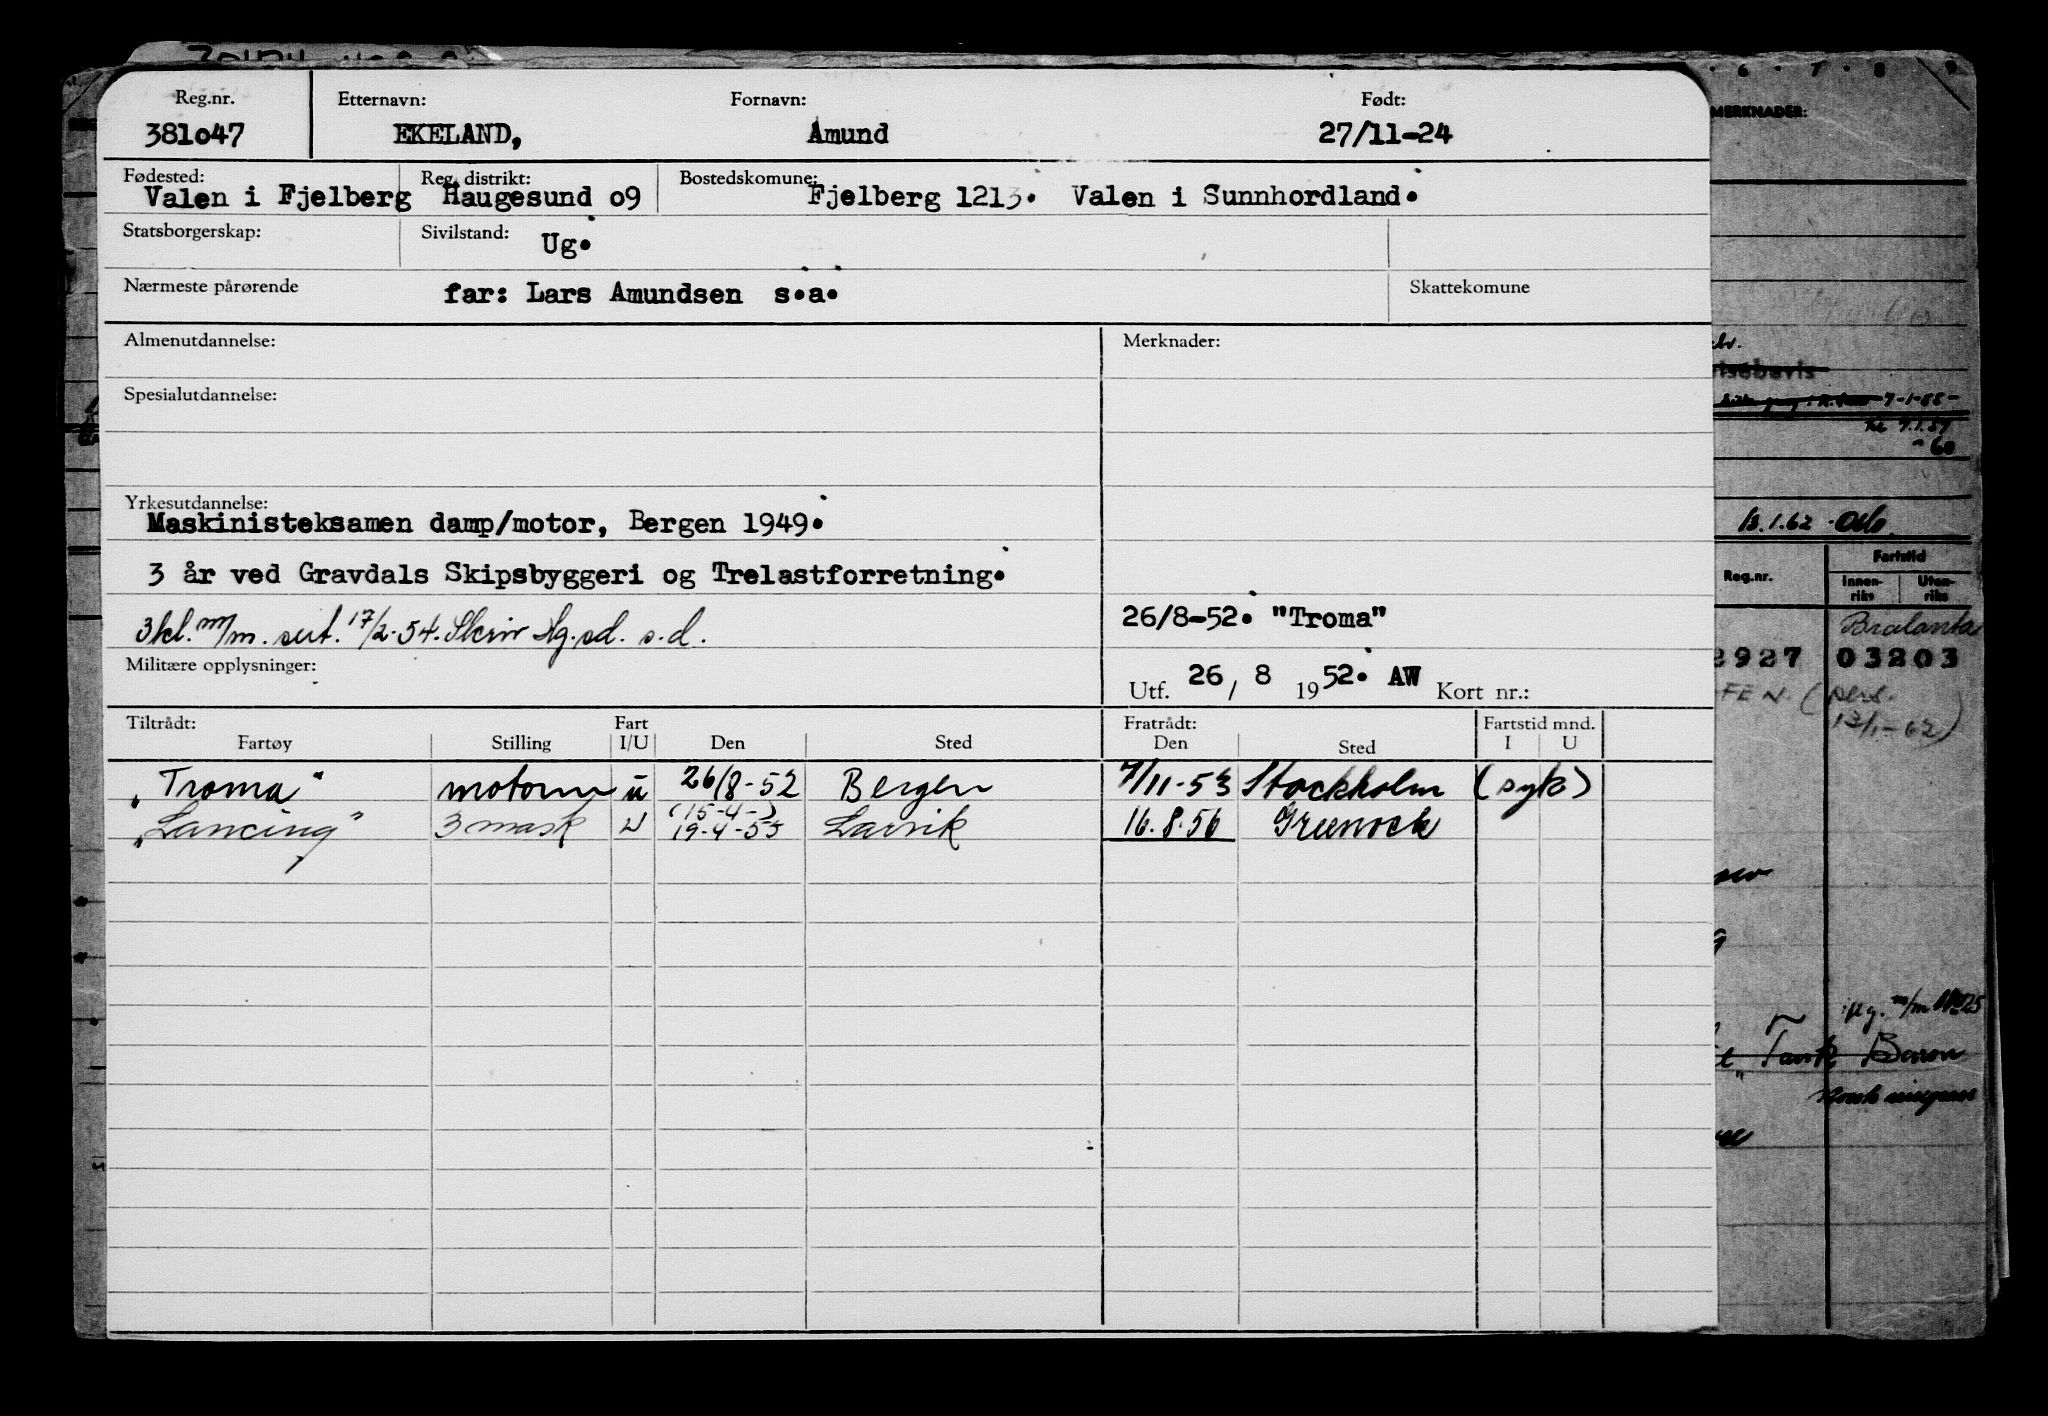 Reg.nr. Etternavn: Fornavn: Født:
381o47 EKELAND, Amund 27/11-24
Fødested: Reg. distrikt: Bostedskomune:
Valen i Fjelberg Haugesund o9 Fjelberg 1213. Valen i Sunnhordland.
Statsborgerskap: Sivilstand: Ug.
Nærmeste pårørende far: Lars Amundsen s.a. Skattekomune
Almenutdannelse: Merknader:
Spesialutdannelse:
Yrkesutdannelse:
Maskinisteksamen damp/motor, Bergen 1949.
3 år ved Gravdals Skipsbyggeri og Trelastforretning.
26/8-52. "Troma"
3 kl. m/m. sert. 17/2-54. Skriv Hg.sd. s.d.
Militære opplysninger:
Utf. 26/ 8 1952. AW Kort nr.:
Tiltrådt: Fart Fratrådt: Fartstid mnd.
Fartøy Stilling I/U Den Sted Den Sted I U
"Troma" motorm u 26/8-52 Bergen 7/11-53 Stockholm (syk)
(15-4-)
"Lancing" 3 mask U 19-4-55 Larvik 16.8.56 Greenock
6 · 7 · 8 · 9
MERKNADER:
7-1-55-
7.1.57
-60
13.1.62 · Oslo
Fartstid
Reg.nr. Innen-riks Uten-riks
Bralanta
2927 03203
FEN. (pens.
13/1-62)
Tank Baron